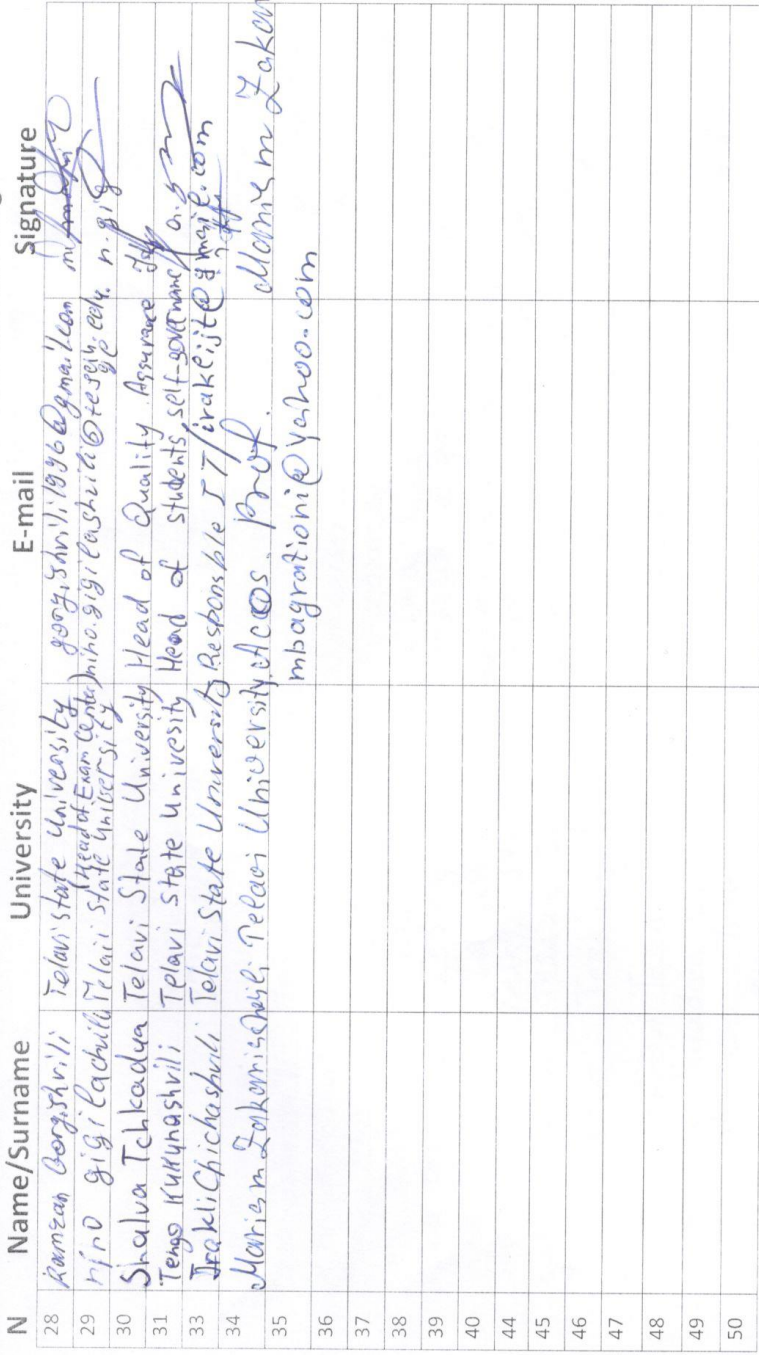 N Name/Surname University E-mail Signature
28 Ramzan Gorgishvili Telavi state University gorgishvili1996@gmail.com
(Head of Exam Center)
29 nino gigilachvili Telavi state university nino.gigilashvili@tesau.edu.ge n.gig
30 Shalva Tchkadua Telavi State University Head of Quality Assurance
31 Tengo Kukunashvili Telavi state Univesity Head of students self-governance
33 Irakli Chichashvili Telavi State University Responsible IT/irakeijte@gmail.com
34 Mariam Zakariashvili Telavi University Accos. Prof. Mariam Zakar
35 mbagrationi@yahoo.com
36
37
38
39
40
44
45
46
47
48
49
50